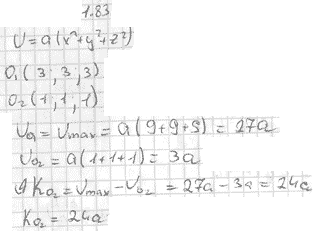 1.83
U = a(x²+y²+z²)
O₁(3; 3; 3)
O₂(1; 1; 1)
U₀₁ = Umax = a(9+9+9) = 27a
U₀₂ = a(1+1+1) = 3a
ΔK₀₂ = Umax - U₀₂ = 27a - 3a = 24a
K₀₂ = 24a